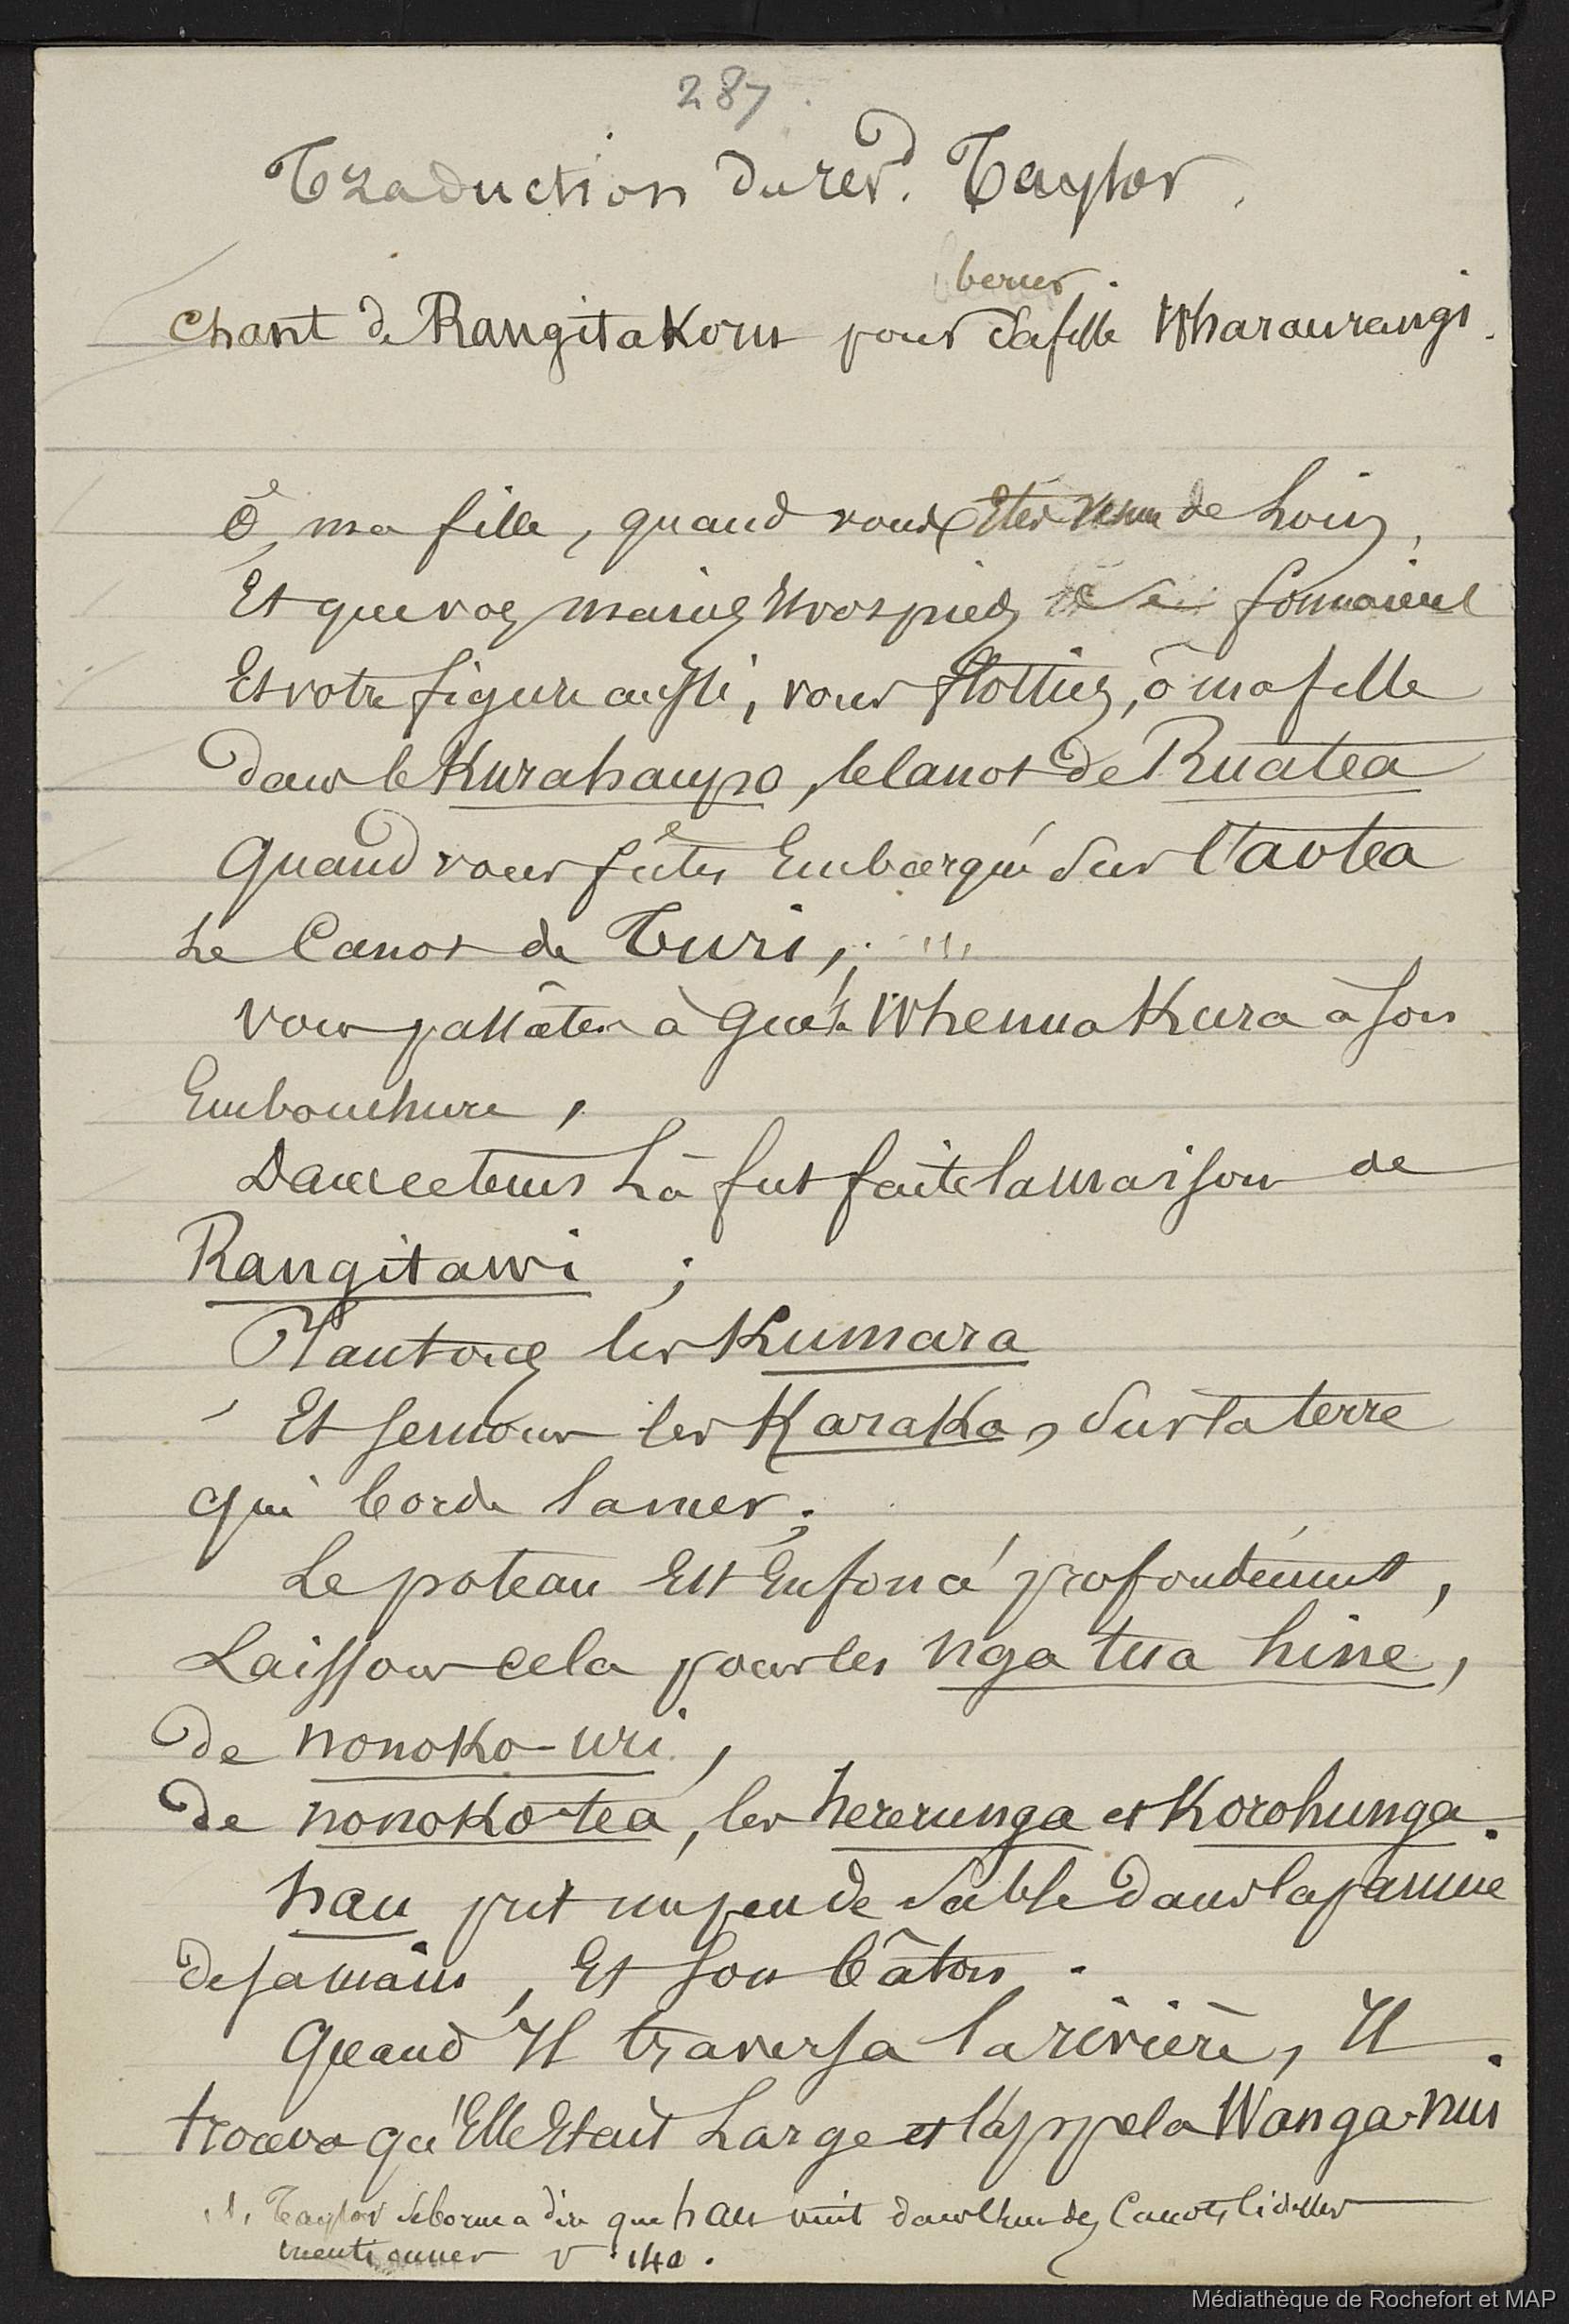 287.
Traduction du révd. Taylor.
bercer.
Chant de Rangitakoru pour sa fille Wharaurangi.
ô, ma fille, quand vous Etes venu de Loin,
Et que vos mains Et vos pieds se formaient
Et votre figure aussi, vous flottiez, ô ma fille
dans le Kurahaupo, le canot de Ruatea
Quand vous fûtes Embarqué sur l'aotea
Le Canot de Turi, (1)
vous passâtes à Gué le Whenua Kura à son
Embouchure,
Dans ce tems Là fut faite la maison de
Rangitawi ;
Plantons les Kumara
Et semons les Karaka, sur la terre
qui borde la mer ;
Le poteau Est Enfoncé profondément,
Laissons cela pour les nga tua hine,
de nonoko-uri,
de nonoko-tea, les hererunga et Korohunga.
hau prit un peu de sable dans la paume
de sa main, Et son bâton.
Quand Il traversa la rivière, Il
trouva qu'Elle Etait Large et l'appela Wanga-nui
(1) Taylor se borne a dire que hau vint dans l'un des Canots
mentionner v 140.
Médiathèque de Rochefort et MAP